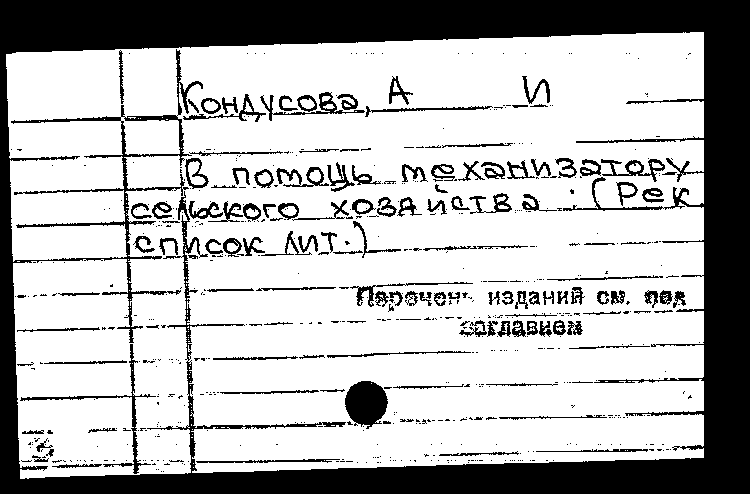 Кондусова, А И
В помощь механизатору
сельского хозяйства : (Рек
список лит.)
Перечень изданий см. под
заглавием